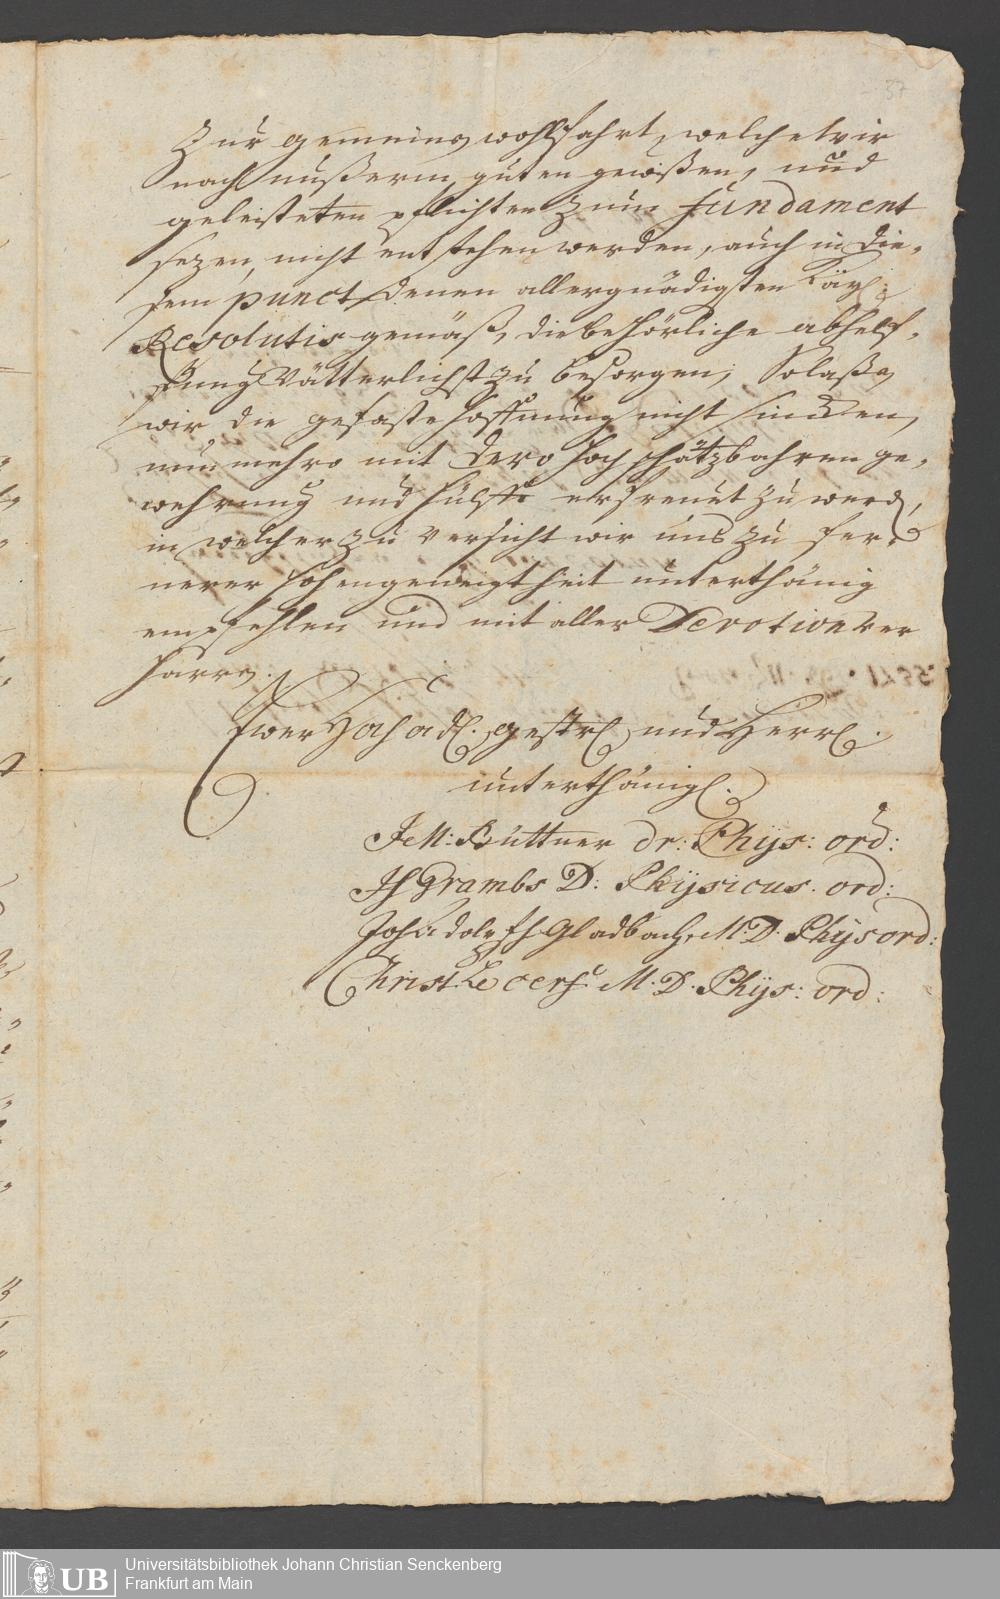 37
Zur gemeinen wohlfahrt, welche wir
nach unßerm guten gewißen, und
geleisteten pflichten zum fundament
sezen, nicht entstehen werden, auch in die-
sem punct denen allergnädigsten Käyl:
Resolutis gemäß, die behörliche abhelf-
fung Vätterlichst zu besorgen; Solaßen
wir die gefaste hoffnung nicht sincken,
nunmehro mit Dero hochschätzbahren ge-
wehrung und hülffe erfreuet zu werden,
in welcher zuversicht wir uns zu fer-
nerer hohen geneigtheit unterthänig
empfehlen und mit aller Devotion ver
harren.
Ewer Hochadl. gestrl und Herrl.
unterthänigl.
JM: Büttner dr: Phys: ord:
JH Grambs D: Physicus. ord:
Joh Adolph Gladbach, M. D. Phys ord:
Christ. Le Cerf M. D. Phys: ord:
UB
Universitätsbibliothek Johann Christian Senckenberg
Frankfurt am Main